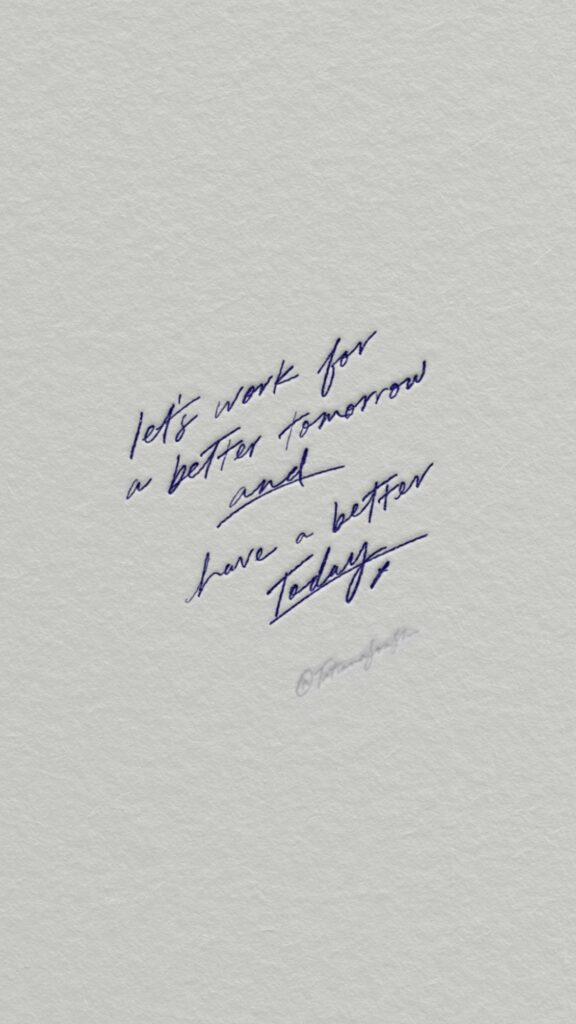 let's work for
a better tomorrow
and
have a better
Today